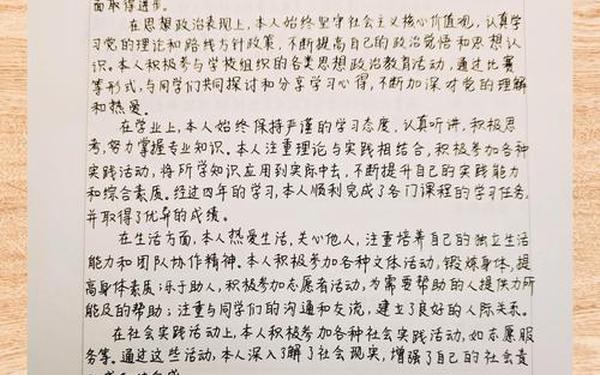 面取得进步。
在思想政治表现上,本人始终坚守社会主义核心价值观,认真学
习党的理论和路线方针政策,不断提高自己的政治觉悟和思想认
识。本人积极参与学校组织的各类思想政治教育活动,通过比赛
等形式,与同学们共同探讨和分享学习心得,不断加深对党的理解
和热爱。
在学业上,本人始终保持严谨的学习态度,认真听讲,积极思
考,努力掌握专业知识。本人注重理论与实践相结合,积极参加各种
实践活动,将所学知识应用到实际中去,不断提升自己的实践能力
和综合素质。经过四年的学习,本人顺利完成了各门课程的学习任务,
并取得了优异的成绩。
在生活方面,本人热爱生活,关心他人,注重培养自己的独立生活
能力和团队协作精神。本人积极参加各种文体活动,锻炼身体,提
高身体素质;乐于助人,积极参加志愿者活动,为需要帮助的人提供力所
能及的帮助;注重与同学们的沟通和交流,建立了良好的人际关系。
在社会实践活动上,本人积极参加各种社会实践活动,如志愿服
务等。通过这些活动,本人深入了解了社会现实,增强了自己的社会责